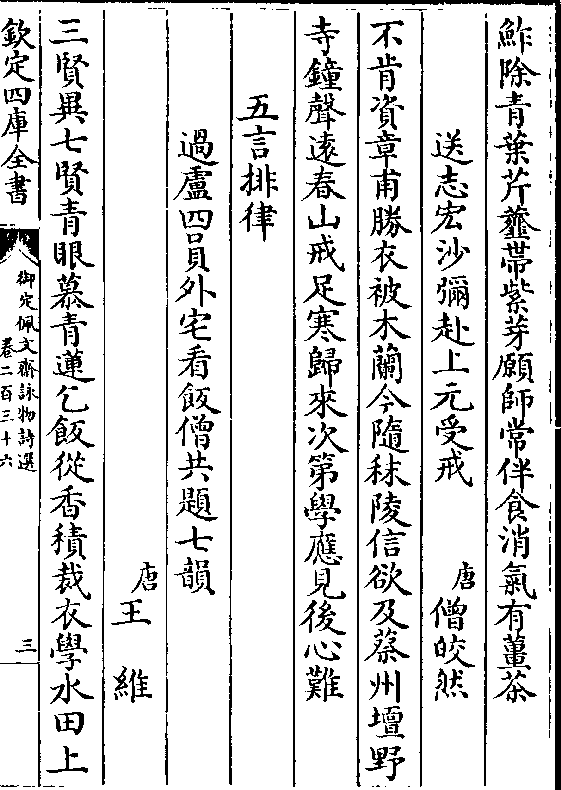 鮓除青葉芹虀帶紫芽願師常伴食消氣有薑茶
送志宏沙彌赴上元受戒
唐僧皎然
不肯資章甫勝衣被木蘭今隨秣陵信欲及蔡州壇野
寺鐘聲遠春山戒足寒歸來次第學應見後心難
五言排律
過盧四員外宅看飯僧共題七韻
唐王維
三賢異七賢青眼慕青蓮乞飯從香積裁衣學水田上
欽定四庫全書
御定佩文齋詠物詩選
卷二百三十六
三